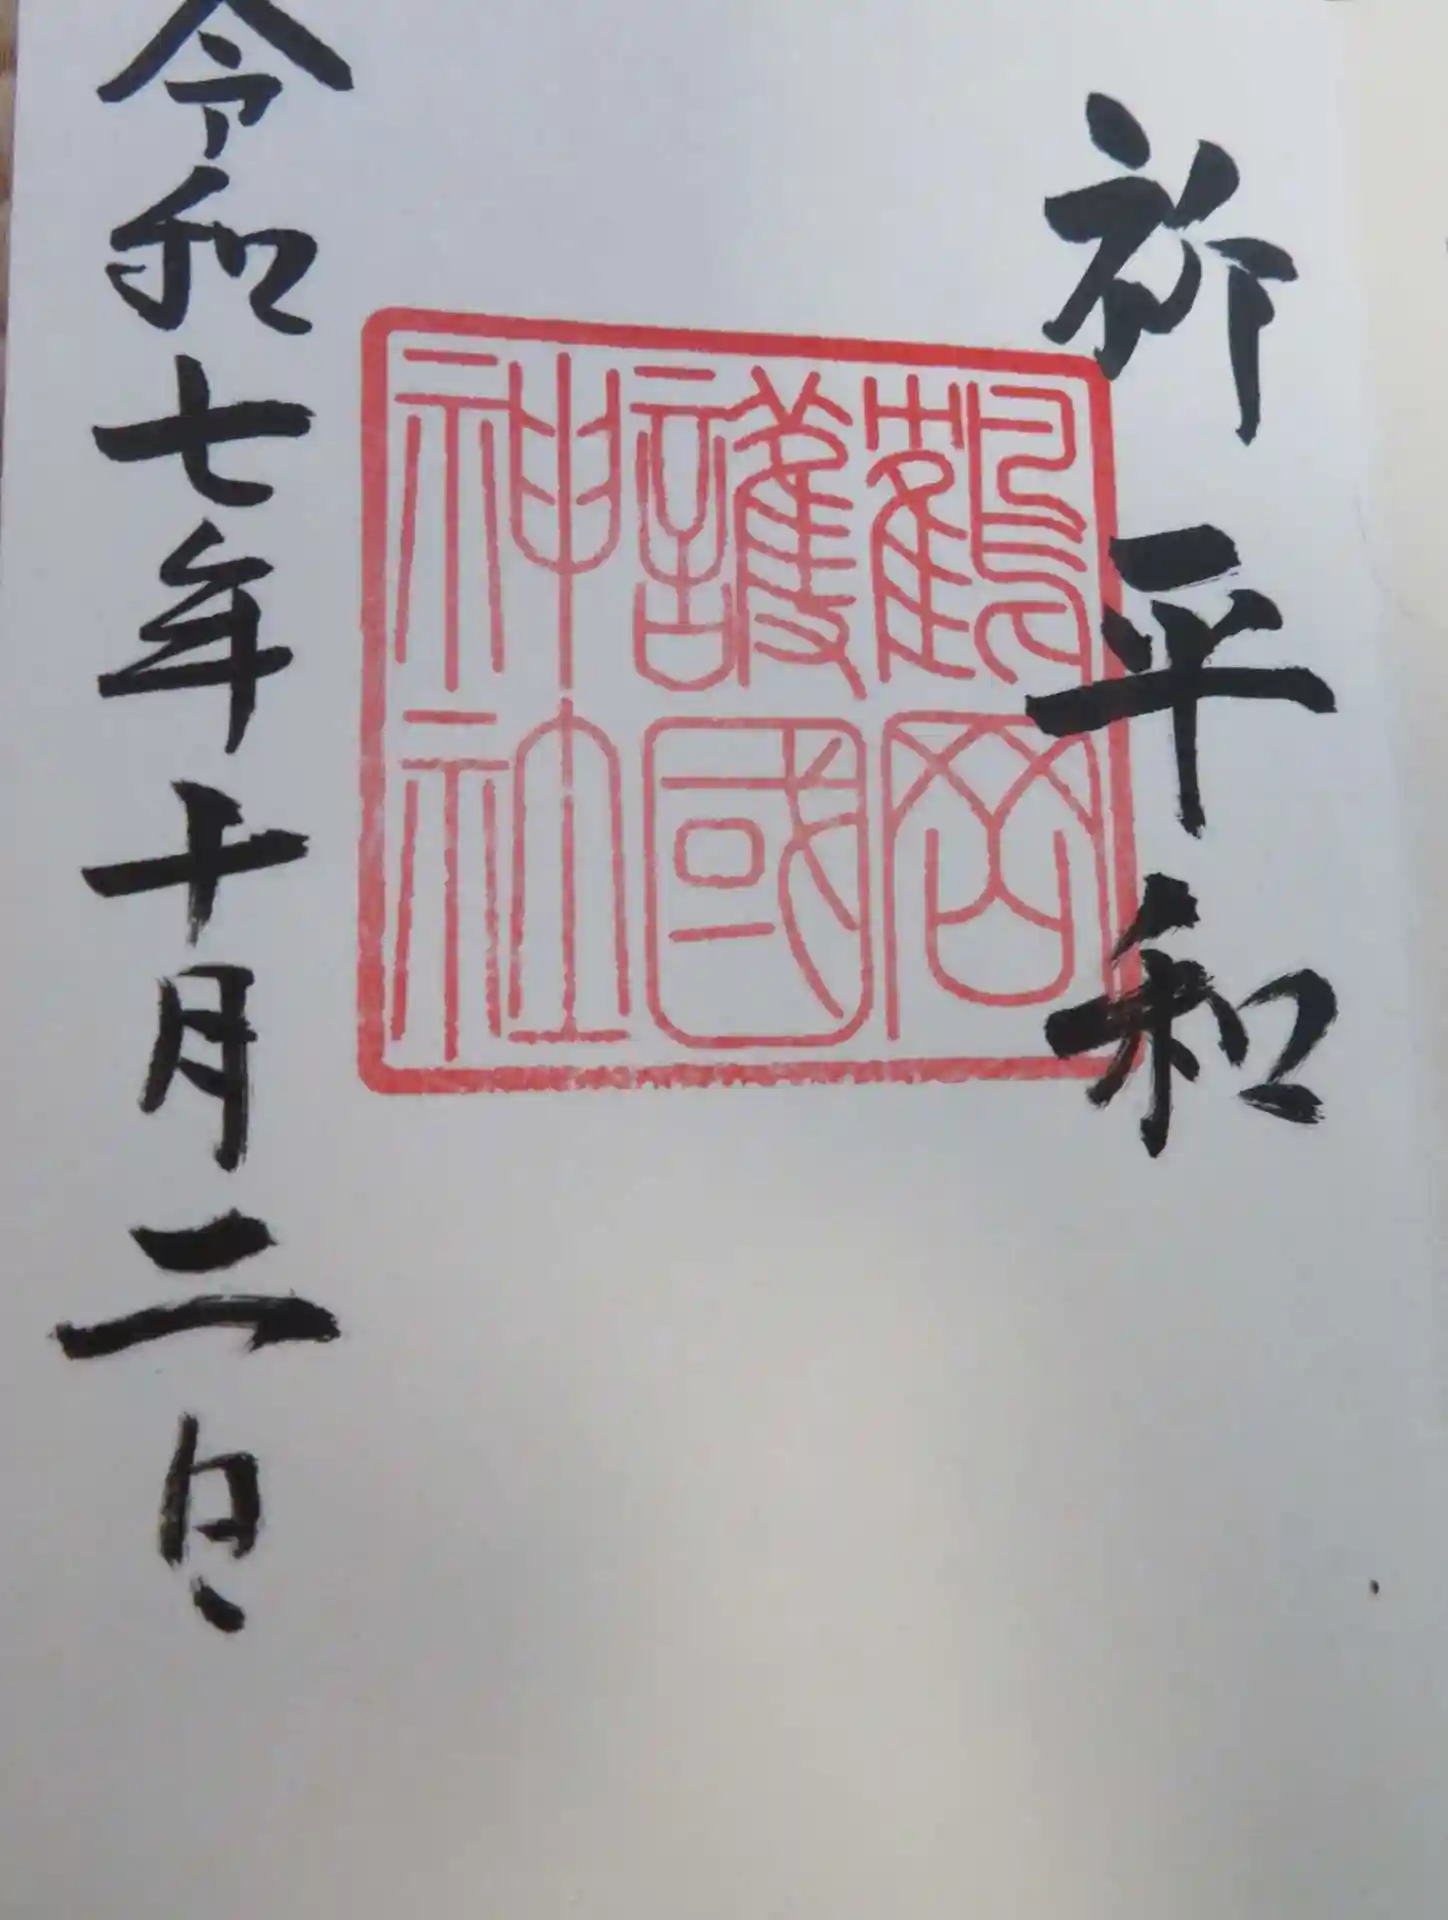 祈平和
鶴岡
護國
神社
令和七年十月二日